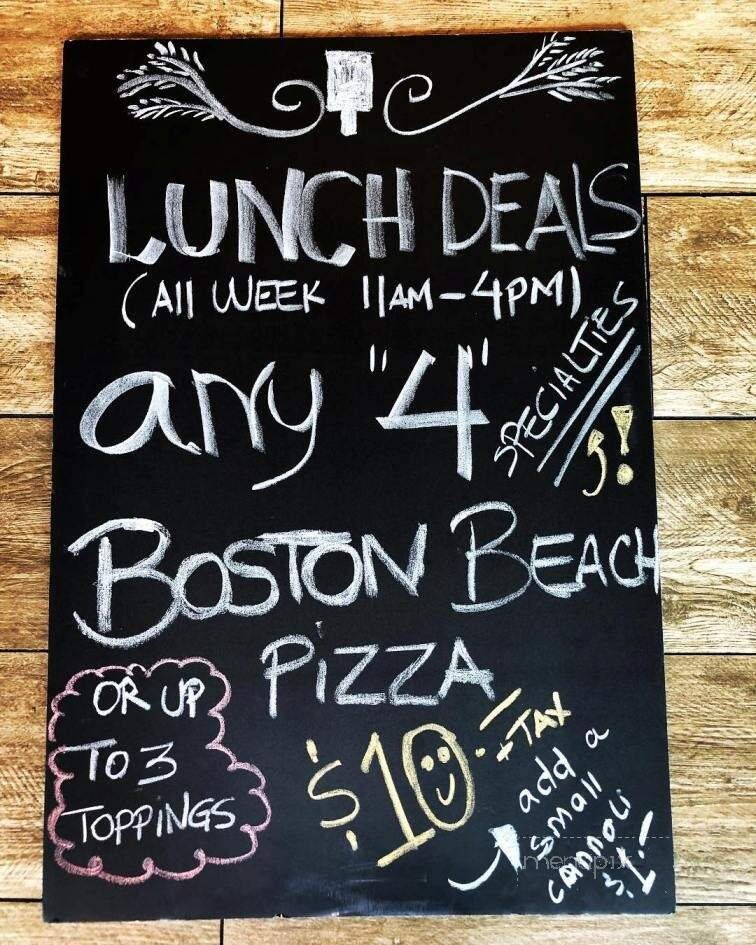 LUNCH DEALS
(All WEEK 11AM-4PM)
any "4"
SPECIALTIES
!
BOSTON BEACH
PIZZA
OR UP
TO 3
TOPPINGS
$10.-
+TAX
add a
small
cannoli
$1.-
menupix